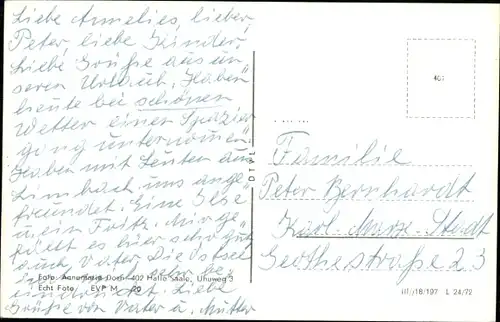 Liebe Annelies, lieber
Peter, liebe Kinder,
Liebe Grüße aus un
seren Urlaub. Haben
heute bei schönen
Wetter einen Spazier
gang unternommen
Haben mit Leuten aus
Limbach uns ange
freundet. Eine Ilse
u. ein Fritz. Mir ge
fällt es hier sehr gut
auch Vater. Die Ostsee
sehr be
eindruckt. Liebe
Grüße von Vater u. Mutter
Foto: Dorn 402 Halle Saale, Uhuweg 3
Echt Foto EVP M -,20
DTVL
401
Familie
Peter Bernhardt
Karl-Marx-Stadt
Goethestraße 23
III/18/197 L 24/72